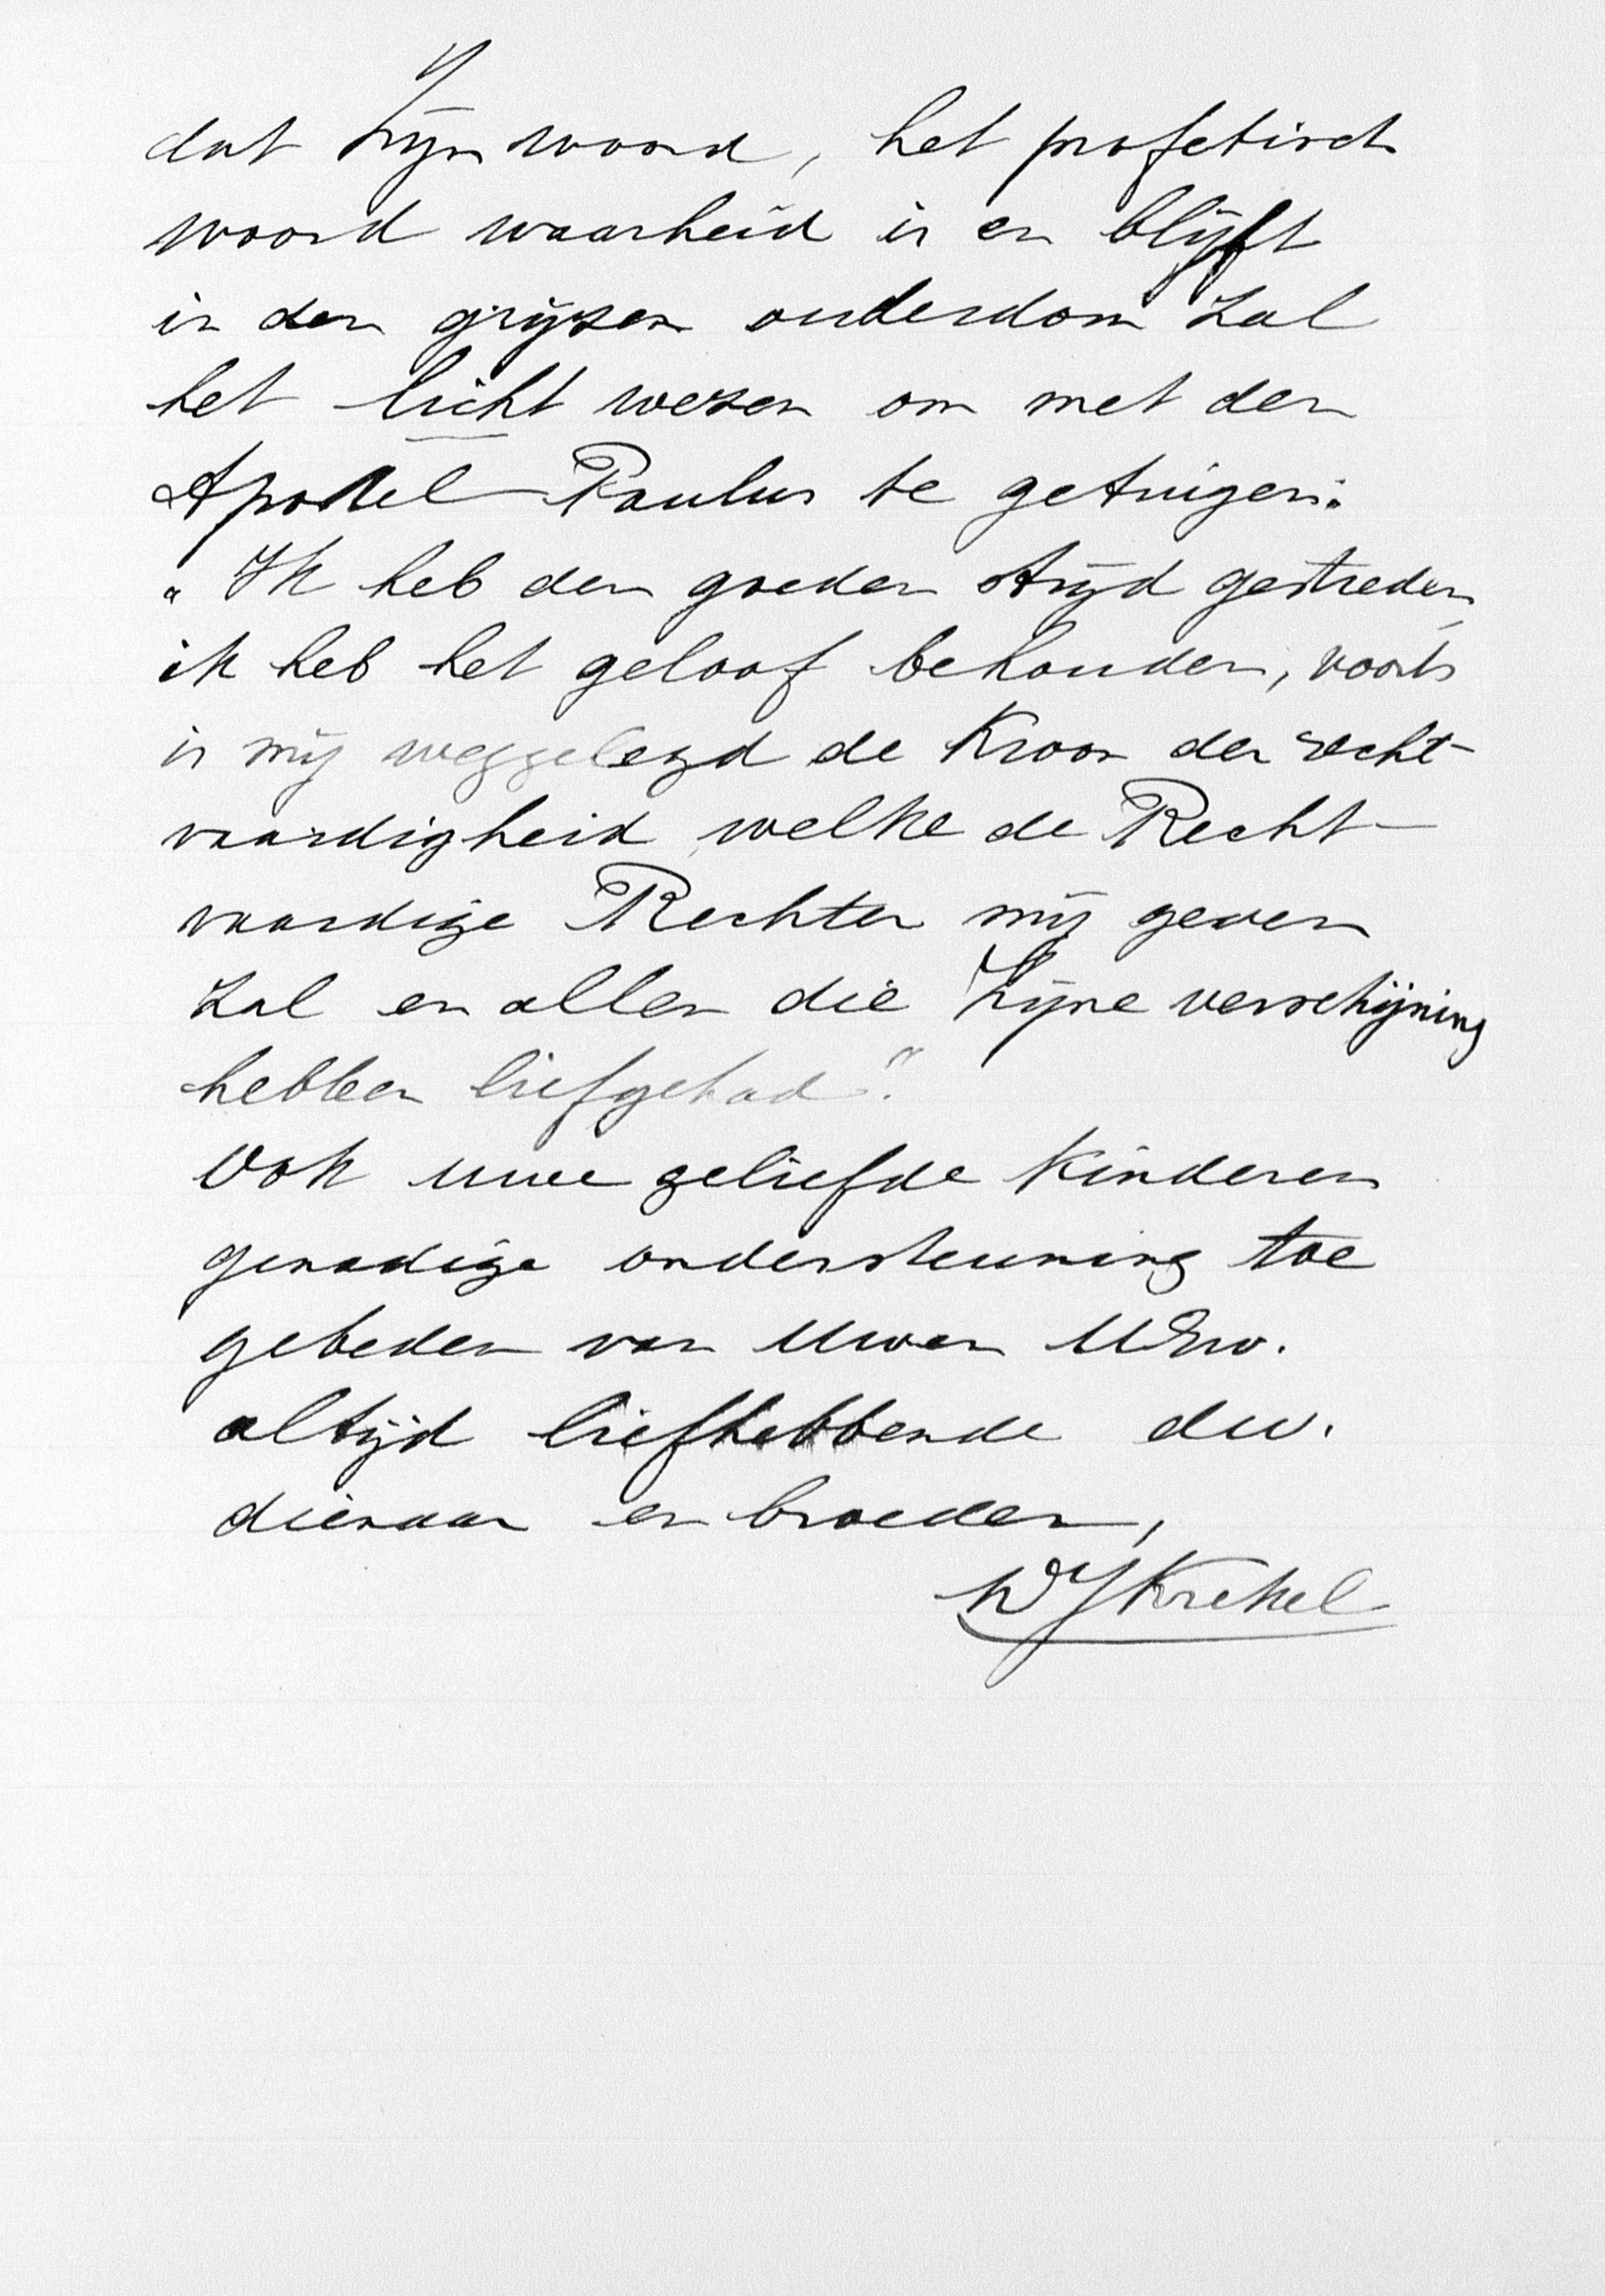 dat Zijn woord, het profetisch
woord waarheid is en blijft
in den grijzen ouderdom zal
het licht wezen om met den
Apostel Paulus te getuigen:
"Ik heb den goeden strijd gestreden,
ik heb het geloof behouden, voorts
is mij weggelegd de Kroon der recht-
vaardigheid welke de Recht-
vaardige Rechter mij geven
zal en allen die Zijne verschijning
hebben liefgehad".
Ook uwe geliefde Kinderen
genadige ondersteuning toe
gebeden van Uwen UEw.
altijd liefhebbende dw.
dienaar en broeder,
WJKrekel